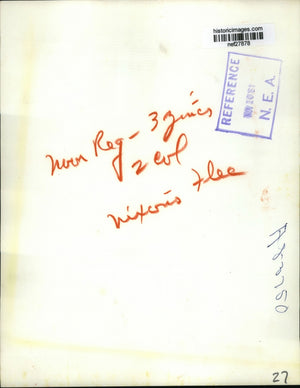 historicimages.com
nef27878
REFERENCE
N.E.A.
Noon Reg - 3 zincs
2 col
Nixons Flee
27